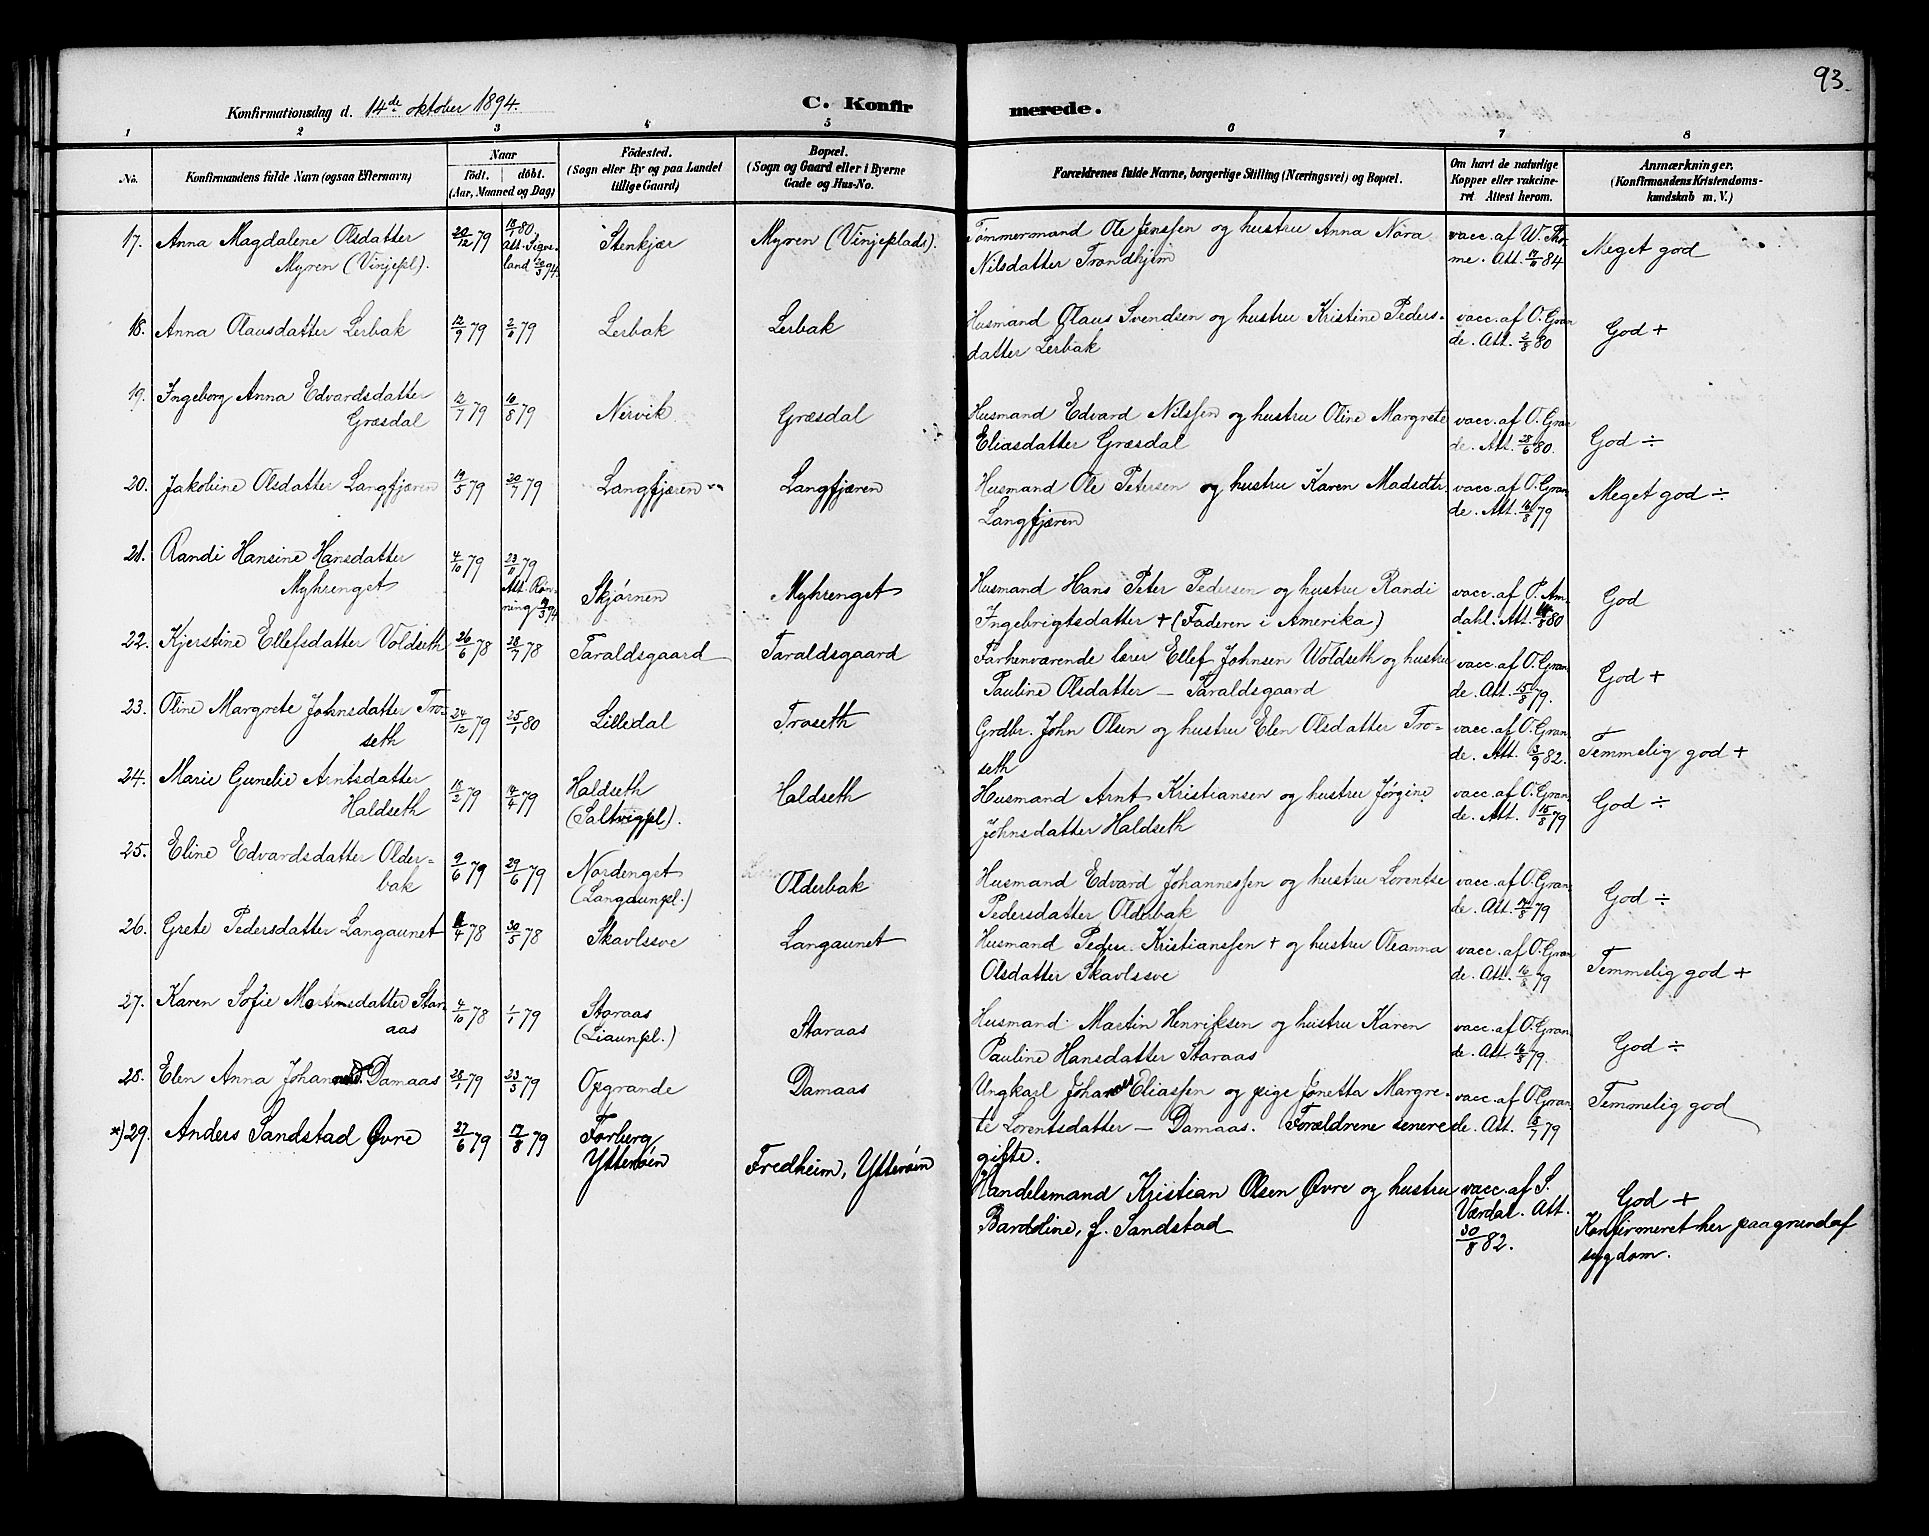 93.
Konfirmationsdag d. 14de oktober 1894.
C. Konfirmerede.
1 2 3 4 5 6 7 8
No.
Konfirmandens fulde Navn (ogsaa Efternavn)
Naar
Födt. döbt.
(Aar, Maaned og Dag)
Födested.
(Sogn eller By og paa Landet
tillige Gaard)
Bopæl.
(Sogn og Gaard eller i Byerne
Gade og Hus-No.
Forældrenes fulde Navne, borgerlige Stilling (Næringsvei) og Bopæl.
Om havt de naturlige
Kopper eller vakcine-
ret Attest herom.
Anmærkninger.
(Konfirmandens Kristendoms-
kundskab m. V.)
17. Anna Magdalene Olsdatter
Myren (Vinjepl).
20/12 79
18/1 80,
Stenkjær
Myren (Vinjeplads).
Tømmermand Ole Jenssen og hustru Anna Nora
Nilsdatter Trondhjem
vacc. af W. Tho-
me. Att. 17/11 84
Meget god
18. Anna Olausdatter Lerbak
12/9 79
2/11 79
Lerbak
Lerbak
Husmand Olaus Svendsen og hustru Kristine Peders-
datter Lerbak
vacc. af O. Gran
de. Att. 2/8 80
God +
19. Ingeborg Anna Edvardsdatter
Græsdal
12/7 79
10/8 79
Nervik
Græsdal
Husmand Edvard Nilssen og hustru Oline Margrete
Eliasdatter Græsdal
vacc. af O. Gran
de. Att. 28/6 80.
God ÷
20. Jakobine Olsdatter Langfjæren
19/5 79
20/7 79
Langfjæren
Langfjæren
Husmand Ole Petersen og hustru Karen Madsdtr.
Langfjæren
vacc. af O. Gran
de. Att. 16/8 79
Meget god ÷
21. Randi Hansine Hansdatter
Myhrenget
4/10 79
23/11 79
Att. Røn-
ning
Skjørnen
Myhrenget
Husmand Hans Peter Pedersen og hustru Randi
Ingebrigtsdatter + (Faderen i Amerika)
vacc. af P. Am-
dahl. Att. 80
God
22. Kjerstine Ellefsdatter Voldseth
26/6 78
28/7 78
Taraldsgaard
Taraldsgaard
Forhenværende lærer Ellef Johnsen Woldseth og hustru
Pauline Olsdatter — Taraldsgaard
vacc. af O. Gran
de. Att. 15/8 79.
God +
23. Oline Margrete Johnsdatter Tro-
seth
24/12 79
25/1 80
Lilledal
Troseth
Grdbr. John Olsen og hustru Elen Olsdatter Tro-
seth
vacc. af O. Gran
de. Att. 3/9 82.
Temmelig god +
24. Marie Gunelie Arntsdatter
Haldseth
18/2 79
14/4 79
Haldseth
(Saltvigpl).
Haldseth
Husmand Arnt Kristiansen og hustru Jørgine
Johnsdatter Haldseth
vacc. af O. Gran-
de. Att. 15/8 79
God ÷
25. Eline Edvardsdatter Older-
bak
9/6 79
29/6 79
Nordenget
(Langaunpl.)
Olderbak
Husmand Edvard Johannessen og hustru Lorentse
Pedersdatter Olderbak
vacc. af O. Gran-
de. Att. 14/8 79
God ÷
26. Grete Pedersdatter Langaunet
/4 78
30/5 78
Skavlssve
Langaunet
Husmand Peder Kristianssen + og hustru Oleanna
Olsdatter Skavlssve
vacc. af O. Gran
de. Att. 16/8 79
Temmelig god +
27. Karen Sofie Martinsdatter Stor-
aas
4/10 78
1/1 79
Storaas
(Liaunpl.)
Storaas
Husmand Martin Henriksen og hustru Karen
Pauline Hansdatter Storaas
vacc. af O. Gran-
de. Att. 16/8 79.
God ÷
28. Elen Anna Damaas
28/1 79
23/3 79
Opgrande
Damaas
Ungkarl Johannes Eliassen og pige Jonetta Margre-
te Lorentsdatter — Damaas. Forældrene senere
gifte.
vacc. af O. Gran
de. Att. 18/7 79
Temmelig god
*) 29. Anders Sandstad Øvre
27/6 79
17/8 79
Forberg,
Ytterøen
Fredheim, Ytterøen
Handelsmand Kristian Olsen Øvre og hustru
Bardoline, f. Sandstad
vacc. af S.
Værdal. Att.
30/8 82.
God +
Konfirmeret her paa grund af
sygdom.